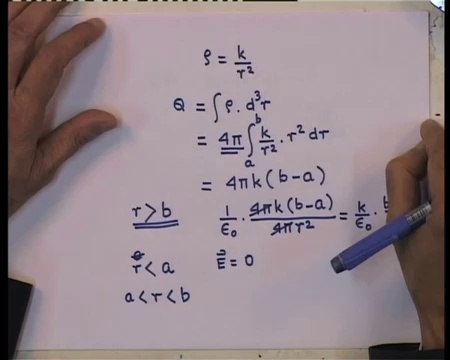 ρ = k/r²
Q = ∫ ρ. d³r
= 4π ∫ₐᵇ k/r² . r² dr
= 4πk(b-a)
r>b 1/ε₀ . 4πk(b-a)/4πr² = k/ε₀ . b
r<a E⃗=0
a<r<b